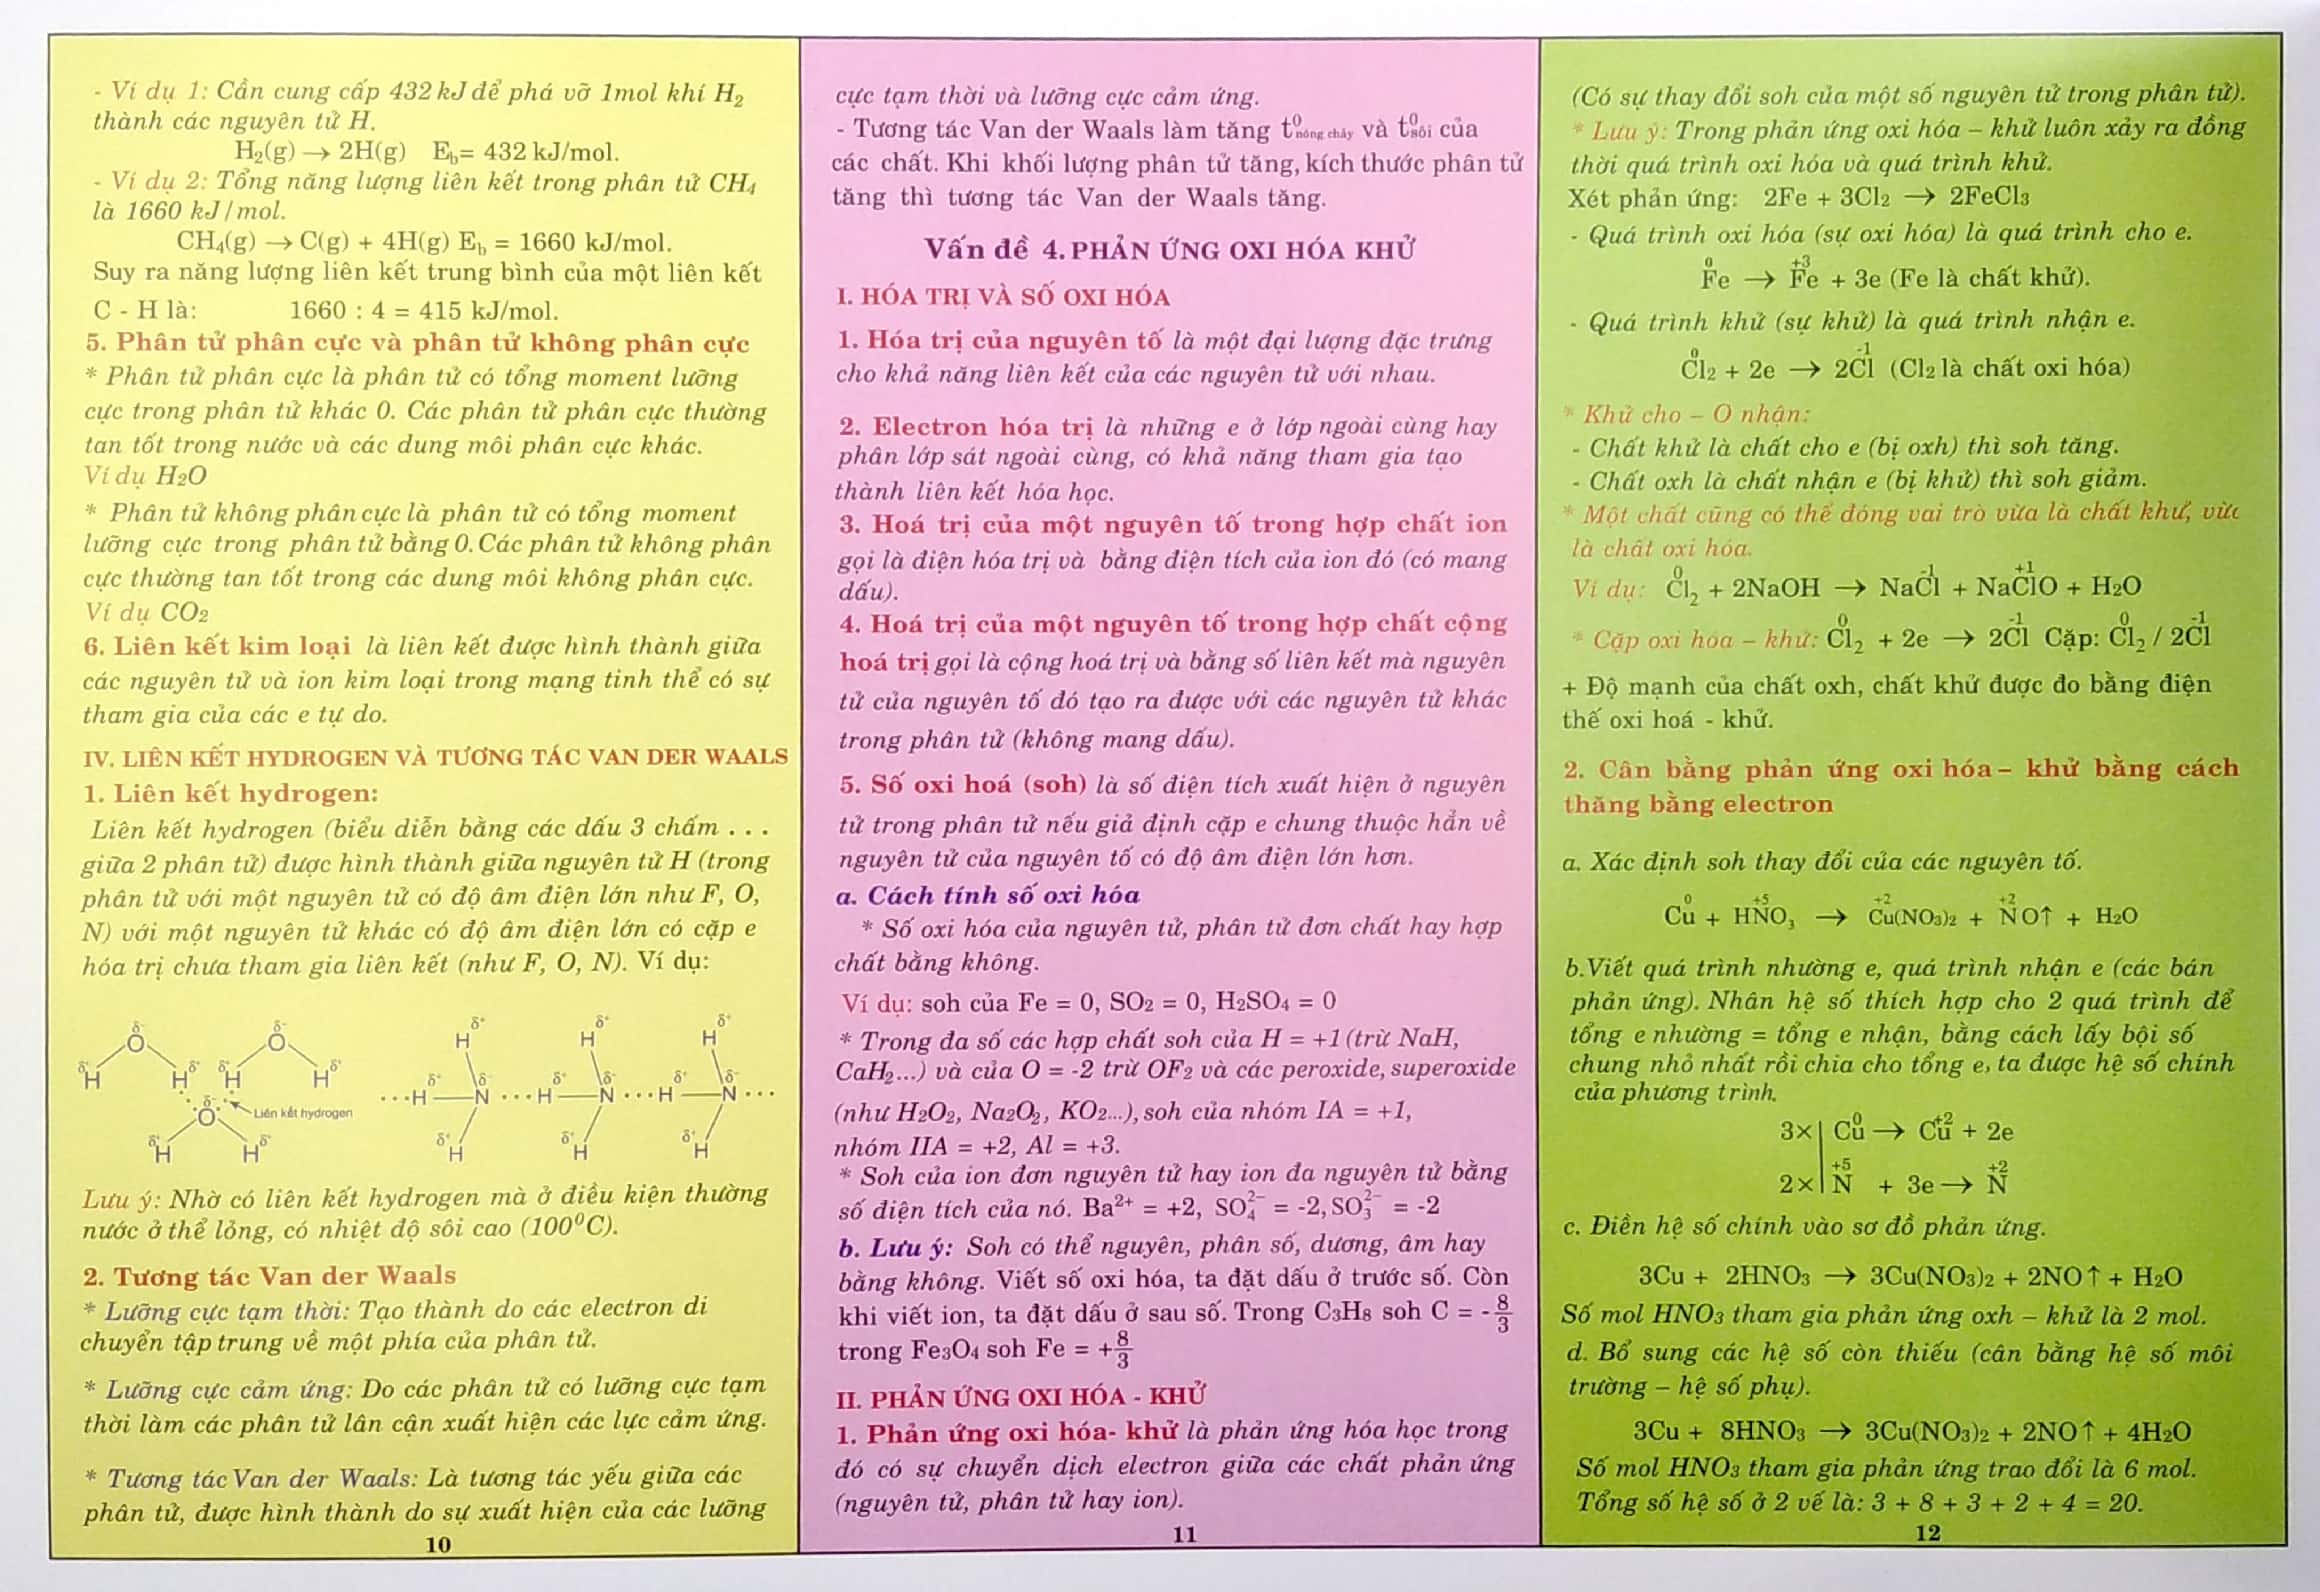 - Ví dụ 1: Cần cung cấp 432 kJ để phá vỡ 1mol khí H₂
thành các nguyên tử H.
H₂(g) → 2H(g) E_b = 432 kJ/mol.
- Ví dụ 2: Tổng năng lượng liên kết trong phân tử CH₄
là 1660 kJ/mol.
CH₄(g) → C(g) + 4H(g) E_b = 1660 kJ/mol.
Suy ra năng lượng liên kết trung bình của một liên kết
C - H là: 1660 : 4 = 415 kJ/mol.
5. Phân tử phân cực và phân tử không phân cực
* Phân tử phân cực là phân tử có tổng moment lưỡng
cực trong phân tử khác 0. Các phân tử phân cực thường
tan tốt trong nước và các dung môi phân cực khác.
Ví dụ H₂O
* Phân tử không phân cực là phân tử có tổng moment
lưỡng cực trong phân tử bằng 0. Các phân tử không phân
cực thường tan tốt trong các dung môi không phân cực.
Ví dụ CO₂
6. Liên kết kim loại là liên kết được hình thành giữa
các nguyên tử và ion kim loại trong mạng tinh thể có sự
tham gia của các e tự do.
IV. LIÊN KẾT HYDROGEN VÀ TƯƠNG TÁC VAN DER WAALS
1. Liên kết hydrogen:
Liên kết hydrogen (biểu diễn bằng các dấu 3 chấm . . .
giữa 2 phân tử) được hình thành giữa nguyên tử H (trong
phân tử với một nguyên tử có độ âm điện lớn như F, O,
N) với một nguyên tử khác có độ âm điện lớn có cặp e
hóa trị chưa tham gia liên kết (như F, O, N). Ví dụ:
δ⁻ δ⁻ H δ⁺ H δ⁺ H δ⁺
O O
δ⁺ δ⁺ δ⁺ δ⁺ δ⁺ δ⁻ δ⁺ δ⁻ δ⁺ δ⁻
H H H H ···H—N ···H—N ···H—N ···
δ⁻
O Liên kết hydrogen
δ⁺ δ⁺ δ⁺ δ⁺ δ⁺
H H H H H
Lưu ý: Nhờ có liên kết hydrogen mà ở điều kiện thường
nước ở thể lỏng, có nhiệt độ sôi cao (100⁰C).
2. Tương tác Van der Waals
* Lưỡng cực tạm thời: Tạo thành do các electron di
chuyển tập trung về một phía của phân tử.
* Lưỡng cực cảm ứng: Do các phân tử có lưỡng cực tạm
thời làm các phân tử lân cận xuất hiện các lực cảm ứng.
* Tương tác Van der Waals: Là tương tác yếu giữa các
phân tử, được hình thành do sự xuất hiện của các lưỡng
10
cực tạm thời và lưỡng cực cảm ứng.
- Tương tác Van der Waals làm tăng t⁰nóng chảy và t⁰sôi của
các chất. Khi khối lượng phân tử tăng, kích thước phân tử
tăng thì tương tác Van der Waals tăng.
Vấn đề 4. PHẢN ỨNG OXI HÓA KHỬ
I. HÓA TRỊ VÀ SỐ OXI HÓA
1. Hóa trị của nguyên tố là một đại lượng đặc trưng
cho khả năng liên kết của các nguyên tử với nhau.
2. Electron hóa trị là những e ở lớp ngoài cùng hay
phân lớp sát ngoài cùng, có khả năng tham gia tạo
thành liên kết hóa học.
3. Hoá trị của một nguyên tố trong hợp chất ion
gọi là điện hóa trị và bằng điện tích của ion đó (có mang
dấu).
4. Hoá trị của một nguyên tố trong hợp chất cộng
hoá trị gọi là cộng hoá trị và bằng số liên kết mà nguyên
tử của nguyên tố đó tạo ra được với các nguyên tử khác
trong phân tử (không mang dấu).
5. Số oxi hoá (soh) là số điện tích xuất hiện ở nguyên
tử trong phân tử nếu giả định cặp e chung thuộc hẳn về
nguyên tử của nguyên tố có độ âm điện lớn hơn.
a. Cách tính số oxi hóa
* Số oxi hóa của nguyên tử, phân tử đơn chất hay hợp
chất bằng không.
Ví dụ: soh của Fe = 0, SO₂ = 0, H₂SO₄ = 0
* Trong đa số các hợp chất soh của H = +1 (trừ NaH,
CaH₂...) và của O = -2 trừ OF₂ và các peroxide, superoxide
(như H₂O₂, Na₂O₂, KO₂...), soh của nhóm IA = +1,
nhóm IIA = +2, Al = +3.
* Soh của ion đơn nguyên tử hay ion đa nguyên tử bằng
số điện tích của nó. Ba²⁺ = +2, SO₄²⁻ = -2, SO₃²⁻ = -2
b. Lưu ý: Soh có thể nguyên, phân số, dương, âm hay
bằng không. Viết số oxi hóa, ta đặt dấu ở trước số. Còn
khi viết ion, ta đặt dấu ở sau số. Trong C₃H₈ soh C = -8/3
trong Fe₃O₄ soh Fe = +8/3
II. PHẢN ỨNG OXI HÓA - KHỬ
1. Phản ứng oxi hóa- khử là phản ứng hóa học trong
đó có sự chuyển dịch electron giữa các chất phản ứng
(nguyên tử, phân tử hay ion).
11
(Có sự thay đổi soh của một số nguyên tử trong phân tử).
* Lưu ý: Trong phản ứng oxi hóa – khử luôn xảy ra đồng
thời quá trình oxi hóa và quá trình khử.
Xét phản ứng: 2Fe + 3Cl₂ → 2FeCl₃
- Quá trình oxi hóa (sự oxi hóa) là quá trình cho e.
0 +3
Fe → Fe + 3e (Fe là chất khử).
- Quá trình khử (sự khử) là quá trình nhận e.
0 -1
Cl₂ + 2e → 2Cl (Cl₂ là chất oxi hóa)
* Khử cho – O nhận:
- Chất khử là chất cho e (bị oxh) thì soh tăng.
- Chất oxh là chất nhận e (bị khử) thì soh giảm.
* Một chất cũng có thể đóng vai trò vừa là chất khử, vừa
là chất oxi hóa.
0 -1 +1
Ví dụ: Cl₂ + 2NaOH → NaCl + NaClO + H₂O
0 -1 0 -1
* Cặp oxi hóa – khử: Cl₂ + 2e → 2Cl Cặp: Cl₂ / 2Cl
+ Độ mạnh của chất oxh, chất khử được đo bằng điện
thế oxi hoá - khử.
2. Cân bằng phản ứng oxi hóa – khử bằng cách
thăng bằng electron
a. Xác định soh thay đổi của các nguyên tố.
0 +5 +2 +2
Cu + HNO₃ → Cu(NO₃)₂ + NO↑ + H₂O
b.Viết quá trình nhường e, quá trình nhận e (các bán
phản ứng). Nhân hệ số thích hợp cho 2 quá trình để
tổng e nhường = tổng e nhận, bằng cách lấy bội số
chung nhỏ nhất rồi chia cho tổng e, ta được hệ số chính
của phương trình.
0 +2
3× | Cu → Cu + 2e
+5 +2
2× | N + 3e → N
c. Điền hệ số chính vào sơ đồ phản ứng.
3Cu + 2HNO₃ → 3Cu(NO₃)₂ + 2NO↑ + H₂O
Số mol HNO₃ tham gia phản ứng oxh – khử là 2 mol.
d. Bổ sung các hệ số còn thiếu (cân bằng hệ số môi
trường – hệ số phụ).
3Cu + 8HNO₃ → 3Cu(NO₃)₂ + 2NO↑ + 4H₂O
Số mol HNO₃ tham gia phản ứng trao đổi là 6 mol.
Tổng số hệ số ở 2 vế là: 3 + 8 + 3 + 2 + 4 = 20.
12